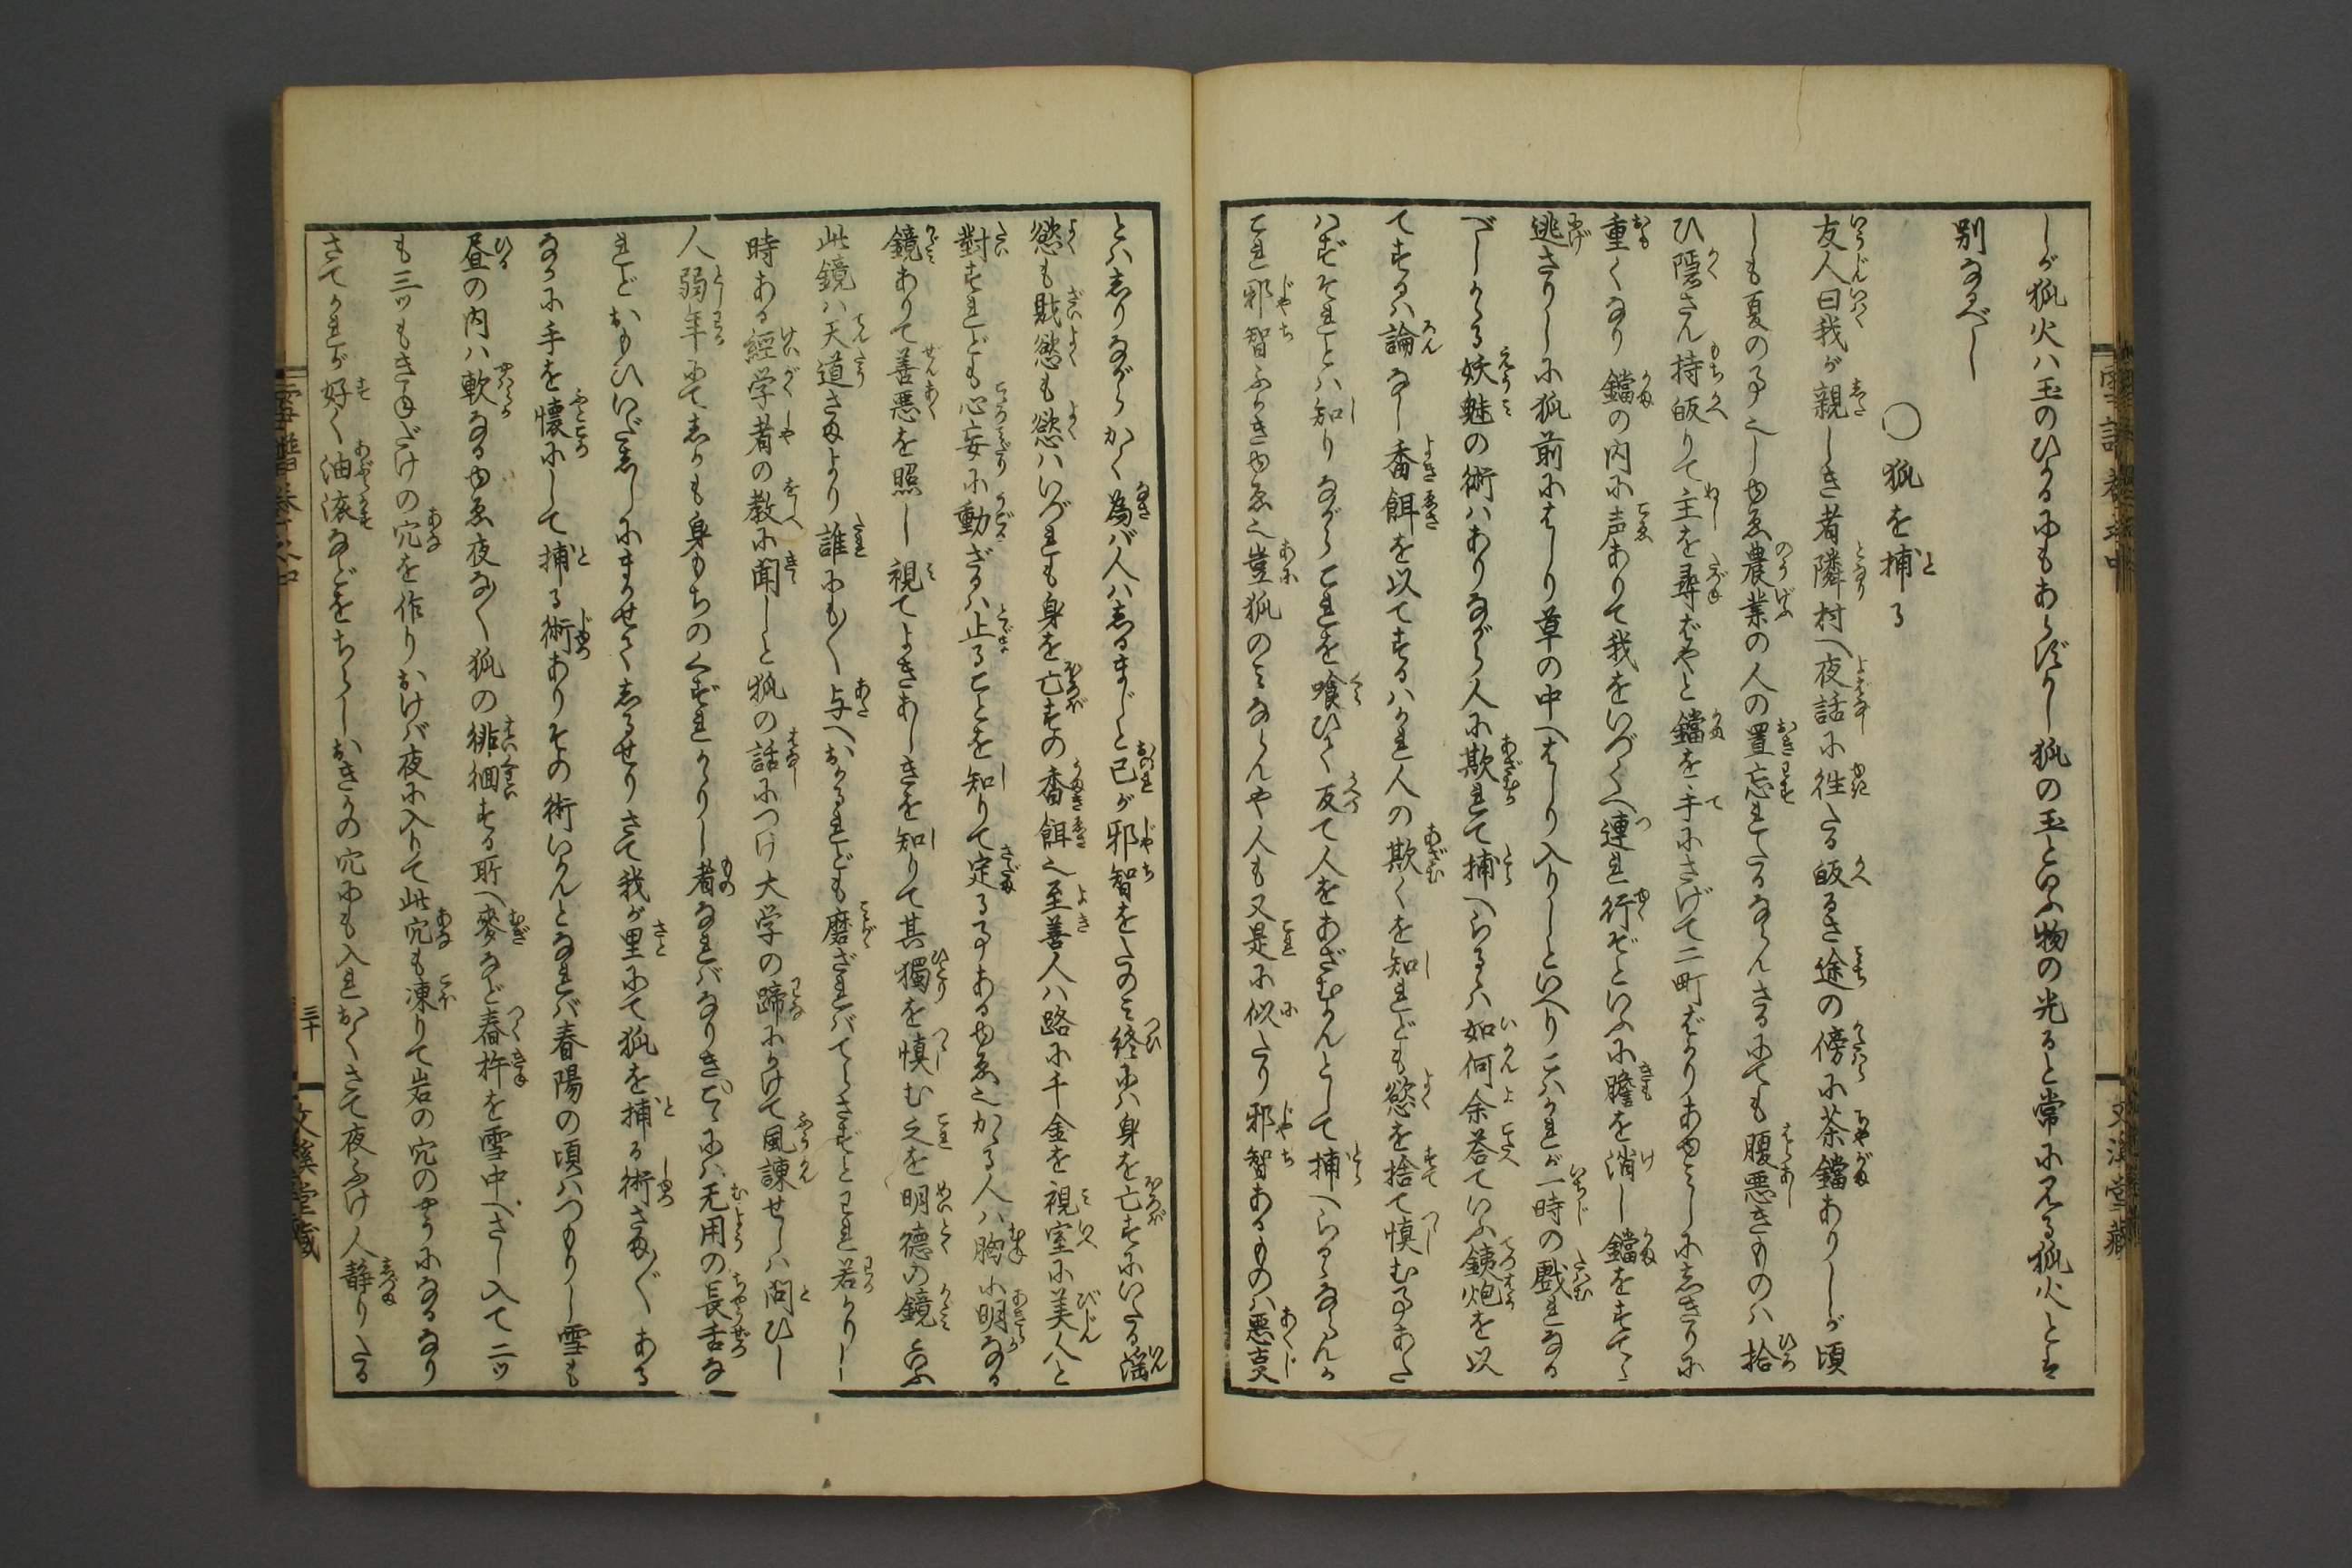 しが狐火ハ玉のひかるにもあらざりし狐の玉といふ物の光ると常に見る狐火とは
別なるべし
○狐を捕る
友人曰我が親しき者隣村へ夜話に往たる皈るさ途の傍に茶鐺ありしが頃
しも夏の事也しゆゑ農業の人の置忘れたるならんさるにても腹悪きものハ拾
ひ隠さん持皈りて主を尋ばやと鐺を手にさげて二町ばかりあゆみしにしきりに
重くなり鐺の内に声ありて我をいづくへ連れ行ぞといふに膽を消し鐺をすてゝ
逃さりしに狐前にはしり草の中へはしり入りしといへりこハかれが一時の戯れなる
べしかゝる妖魅の術ハありながら人に欺れて捕へらるゝハ如何余荅ていふ銕炮を以
てするハ論なし香餌を以てするハかれ人の欺くを知れども慾を捨て慎む事あた
ハずそれとハ知りながらこれを喰ひて反て人をあざむかんとして捕へらるゝならんか
これ邪智ふかきゆゑ也豈狐のミならんや人も又是に似たり邪智あるものハ悪㕝
とハしりながらかく為バ人ハしるまじと己が邪智をたのミ終にハ身を亡すにいたる淫
慾も貨慾も慾ハいづれも身を亡すの香餌也至善人ハ路に千金を視室に美人と
對すれども心妄に動ざるハ止ることを知りて定る事あるゆゑ也かゝる人ハ胸に明なる
鏡ありて善悪を照し視てよきあしきを知りて其獨を慎む之を明徳の鏡といふ
此鏡ハ天道さまより誰にも〳〵与へおかるれども磨ざれバてらさずとわれ若かりし
時ある經学者の教に聞しと狐の話につけ大学の蹄にかけて風諫せしハ問ひし
人弱年にてしかも身もちのくずれかゝりし者なれバなりきこゝにハ无用の長舌な
れどおもひいだししにまかせてしるせりさて我が里にて狐を捕る術さま〴〵ある
なかに手を懐にして捕る術ありその術いかんとなれバ春陽の頃ハつもりし雪も
昼の内ハ軟なるゆゑ夜な〳〵狐の徘徊する所へ麥など舂杵を雪中へさし入て二ッ
も三ッもきねだけの穴を作りおけバ夜に入りて此穴も凍りて岩の穴のやうになるなり
さてかれが好く油滓などをちらしおきかの穴にも入れおくさて夜ふけ人静りたる
三十
文溪堂藏
文溪堂藏